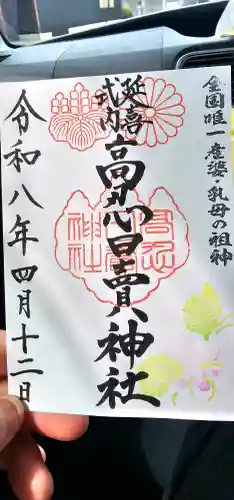 全国唯一産婆・乳母の祖神
延喜
式内
高忍日賣神社
令和八年四月十二日